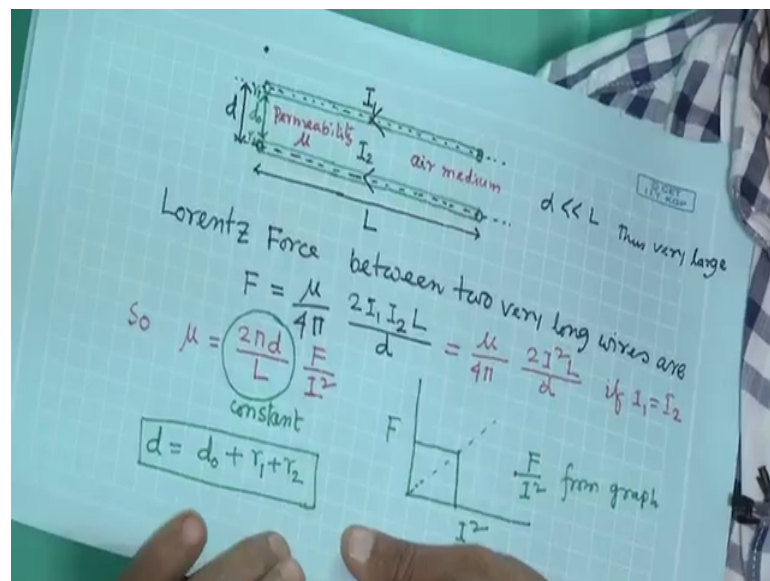 I₁
d d₀ r₁ Permeability
μ
r₂ I₂ air medium
L
d << L Thus very large
Lorentz Force between two very long wires are
F = μ/4π 2I₁I₂L/d = μ/4π 2I²L/d if I₁=I₂
So μ = 2πd/L F/I²
constant
d = d₀ + r₁ + r₂
F
I²
F/I² from graph